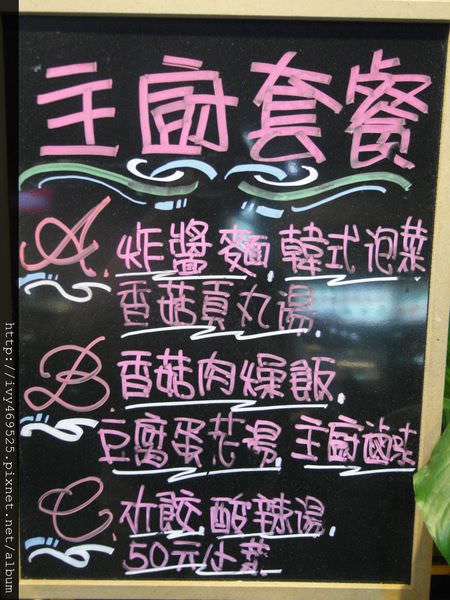 主廚套餐
A. 炸醬麵. 韓式泡菜
香菇貢丸湯.
B. 香菇肉燥飯.
豆腐蛋花湯. 主廚滷味
C. 水餃 酸辣湯.
50元小菜.
http://ivy469525.pixnet.net/album